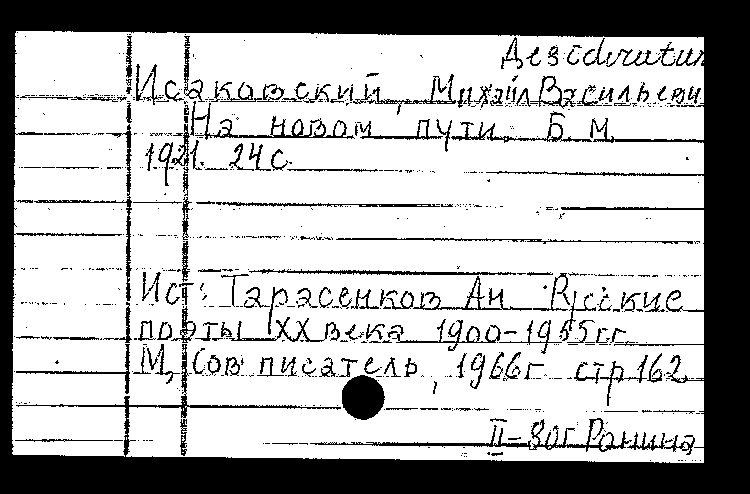 Дезidеrаtит
Исаковский, Михаил Васильеви
На новом пути. Б. М.
1921. 24 с.
Ист: Тарасенков Ан Русские
поэты XX века 1900-1955гг.
М, Сов писатель, 1966г стр 162
II-80г Ранина